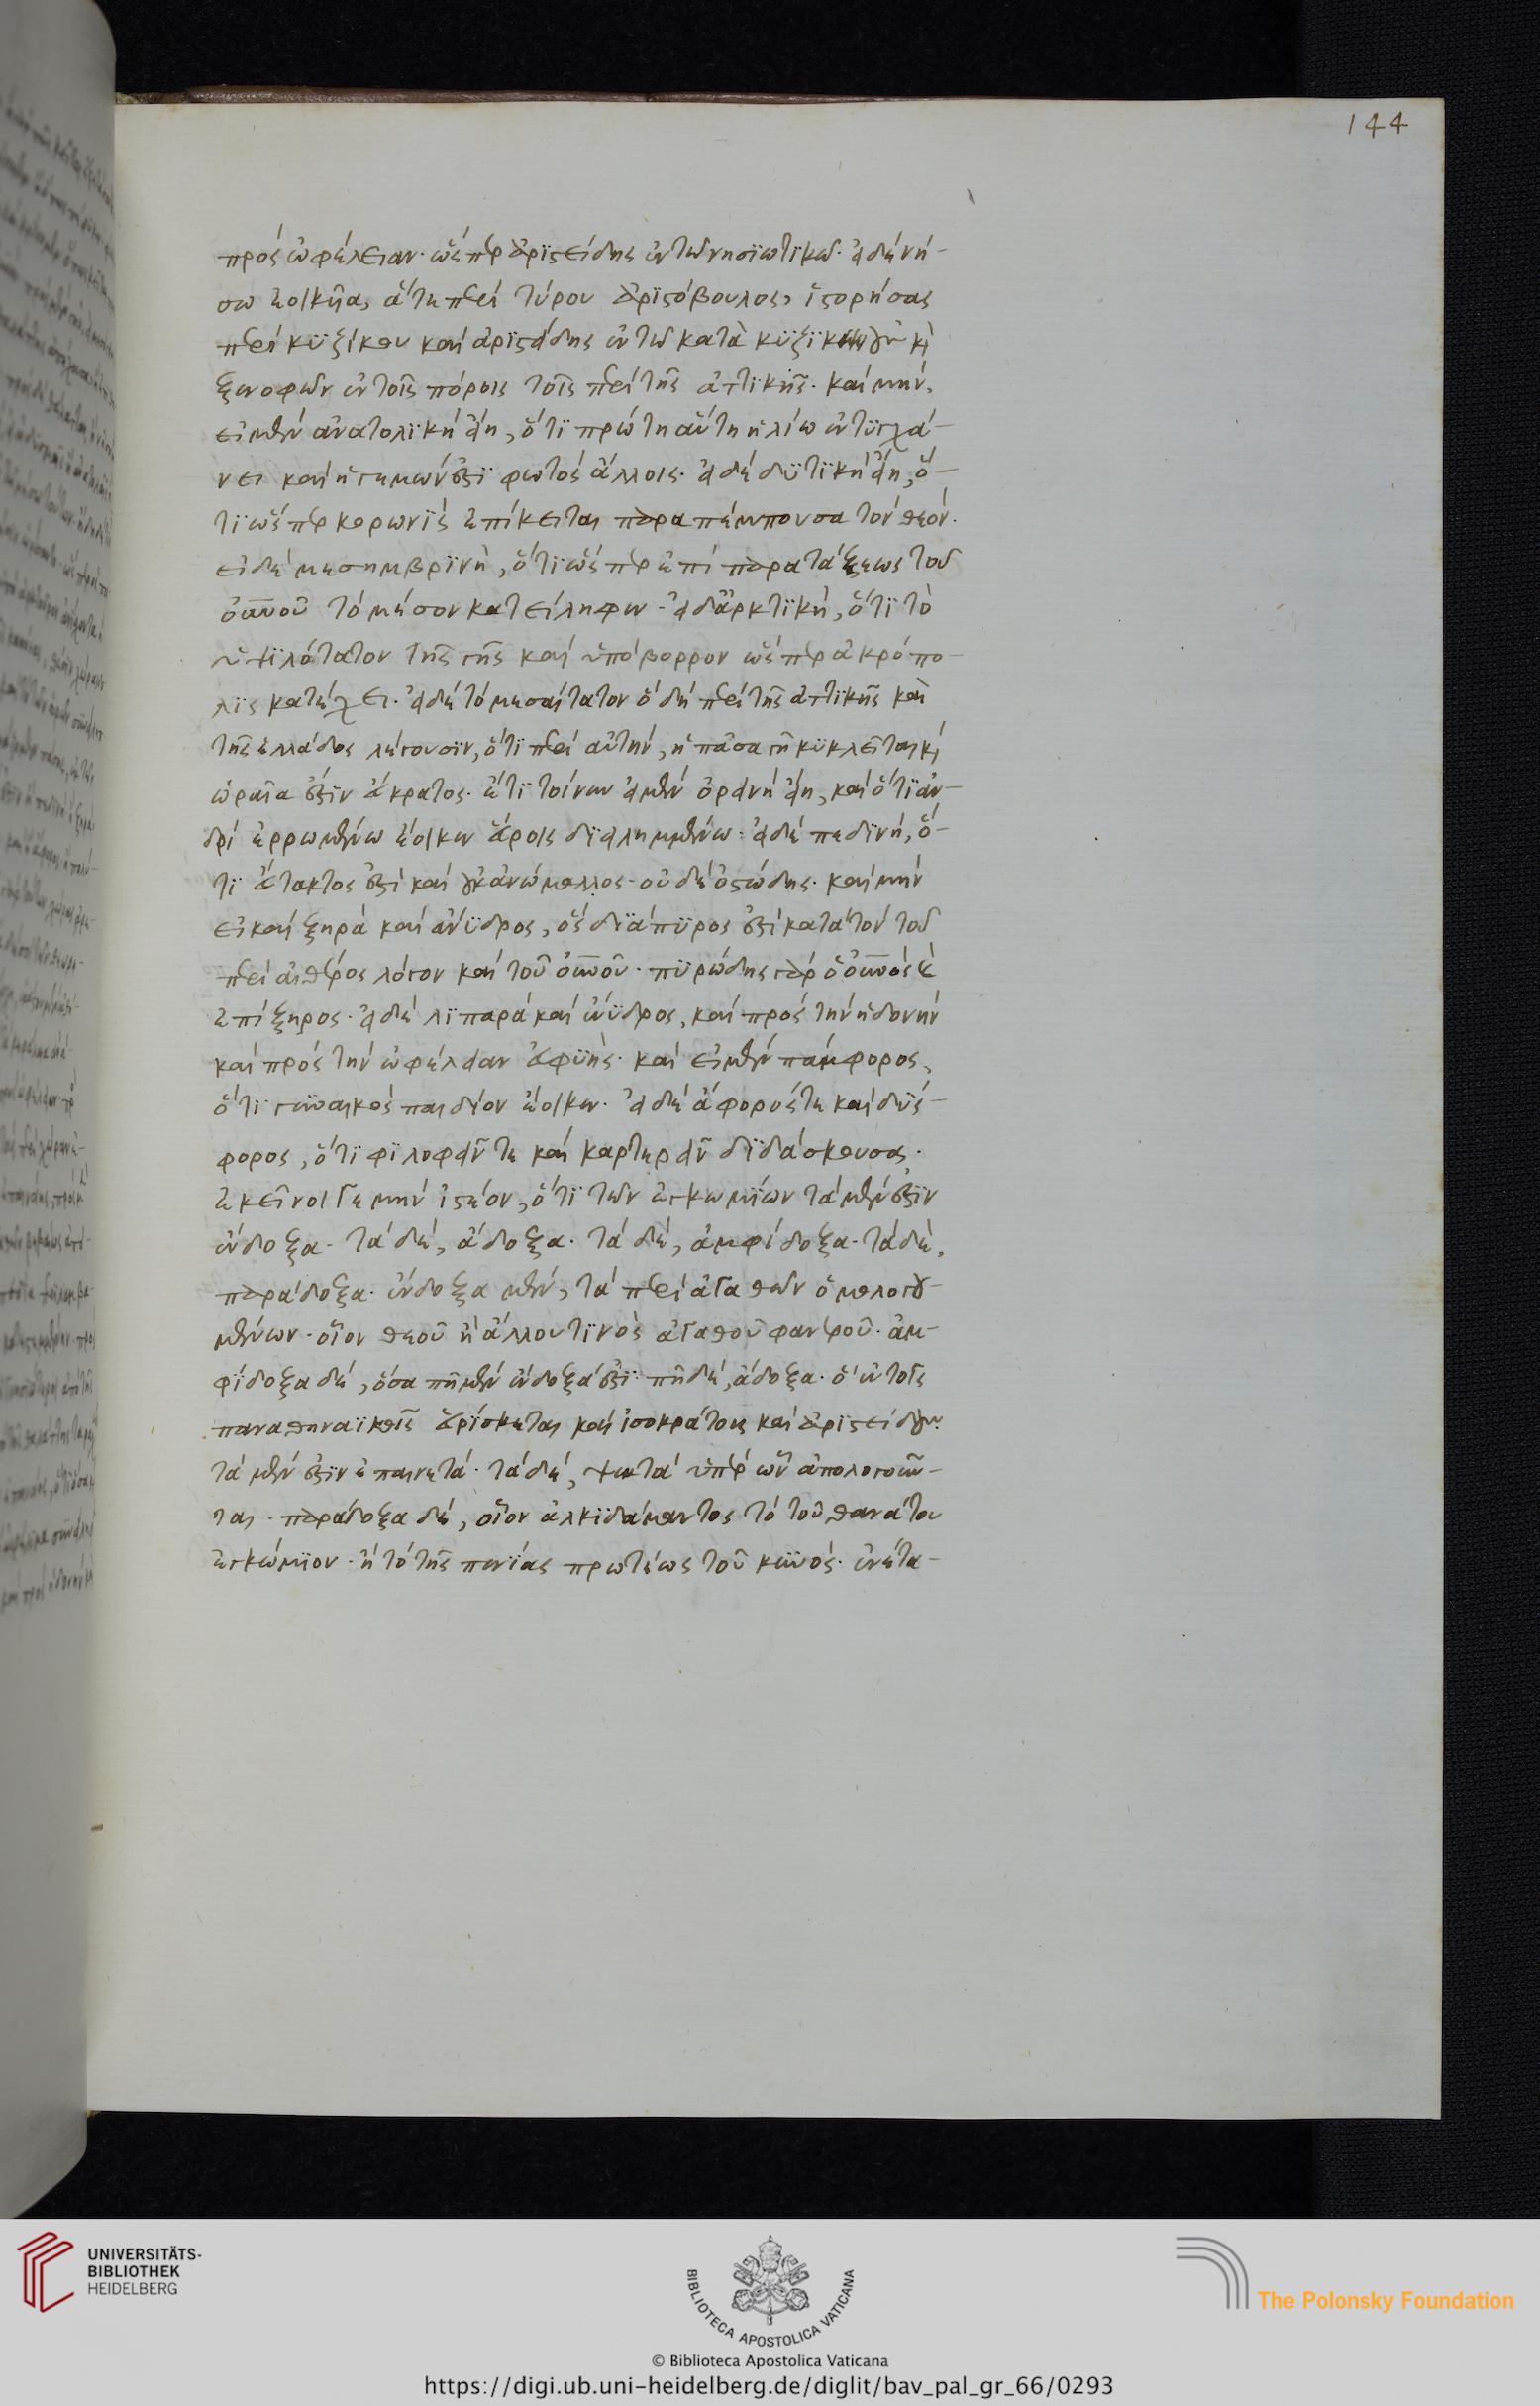 144
πρὸς ὠφέλειαν· ὥσπερ ἀριστείδης ἐν τῶ νησιωτικῶ· εἰ δὲ νή-
σω ἐοικῆα, ἅτε περὶ τύρου ἀριστόβουλος, ἱστορήσας
περὶ κυζίκου καὶ ἀριστείδης ἐν τῶ κατὰ κύζικον καὶ
ξενοφῶν ἐν τοῖς πόροις τοῖς περὶ τῆς ἀττικῆς· καὶ μὴν,
εἰ μὲν ἀνατολικὴ εἴη, ὅτι πρώτη αὕτη ἡλίω ἐντυγχά-
νει καὶ ἡγεμών ἐστι φωτὸς ἄλλοις· εἰ δὲ δυτικὴ εἴη, ὅ-
τι ὥσπερ κορωνὶς ἐπίκειται παραπέμπουσα τὸν θεόν·
εἰ δὲ μεσημβρινὴ, ὅτι ὥσπερ ἐπὶ παρατάξεως τοῦ
οὐνοῦ τὸ μέσον κατείληφεν· εἰ δ' ἀρκτικὴ, ὅτι τὸ
ὑψιλότατον τῆς γῆς καὶ ὑπόβορρον ὥσπερ ἀκρόπο-
λις κατέχει· εἰ δὲ τὸ μεσαίτατον ὃ δὴ περὶ τῆς ἀττικῆς καὶ
τῆς ἑλλάδος λέγουσιν, ὅτι περὶ αὐτὴν, ἡ πᾶσα γῆ κυκλεῖται καὶ
ὡραῖα ἐστὶν ἄκρατος· ἔτι τοίνυν εἰ μὲν ὀρεινὴ εἴη, καὶ ὅτι ἀν-
δρὶ ἐρρωμένω ἔοικεν ὄροις διειλημμένω· εἰ δὲ πεδινὴ, ὅ-
τι εὔτακτος ἐστὶ καὶ οὐκ ἀνώμαλλος· οὐδὲ ὀστώδης· καὶ μὴν
εἰ καὶ ξηρὰ καὶ ἄνυδρος, ὡς διάπυρος ἐστὶ κατὰ τὸν τοῦ
περὶ αἰθέρος λόγον καὶ τοῦ οὐνοῦ· πυρώδης γὰρ ὁ οὐνός καὶ
ἐπίξηρος· εἰ δὲ λιπαρὰ καὶ ἔνυδρος, καὶ πρὸς τὴν ἡδονὴν
καὶ πρὸς τὴν ὠφέλειαν εὐφυής· καὶ εἰ μὲν πάμφορος,
ὅτι γυναικὸς παιδίον ἔοικεν· εἰ δὲ ἄφορός τε καὶ δύσ-
φορος, ὅτι φιλοφεῖν τε καὶ καρτερεῖν διδάσκουσα·
ἐκεῖνοι γε μὴν ἰστέον, ὅτι τῶν ἐγκωμίων τὰ μὲν ἐστὶν
ἔνδοξα· τὰ δὲ, ἄδοξα· τὰ δὲ, ἀμφίδοξα· τὰ δὲ,
παράδοξα· ἔνδοξα μὲν, τὰ περὶ ἀγαθῶν ὁμολογου-
μένων· οἷον θεοῦ ἢ ἄλλου τινὸς ἀγαθοῦ φανεροῦ· ἀμ-
φίδοξα δὲ, ὅσα πῆ μὲν ἔνδοξά ἐστι πῆ δὲ, ἄδοξα· ὃ ἐν τοῖς
παναθηναϊκοῖς εὑρίσκεται καὶ ἰσοκράτους καὶ ἀριστείδου·
τὰ μὲν ἐστιν ἐπαινετά· τὰ δὲ, ψεκτὰ ὑπὲρ ὧν ἀπολογοῦν-
ται· παράδοξα δὲ, οἷον ἀλκιδάμαντος τὸ τοῦ θανάτου
ἐγκώμιον· ἢ τὸ τῆς πενίας πρωτέως τοῦ κυνός· ἐνέτα-
UNIVERSITÄTS-
BIBLIOTHEK
HEIDELBERG
BIBLIOTECA APOSTOLICA VATICANA
The Polonsky Foundation
© Biblioteca Apostolica Vaticana
https://digi.ub.uni-heidelberg.de/diglit/bav_pal_gr_66/0293